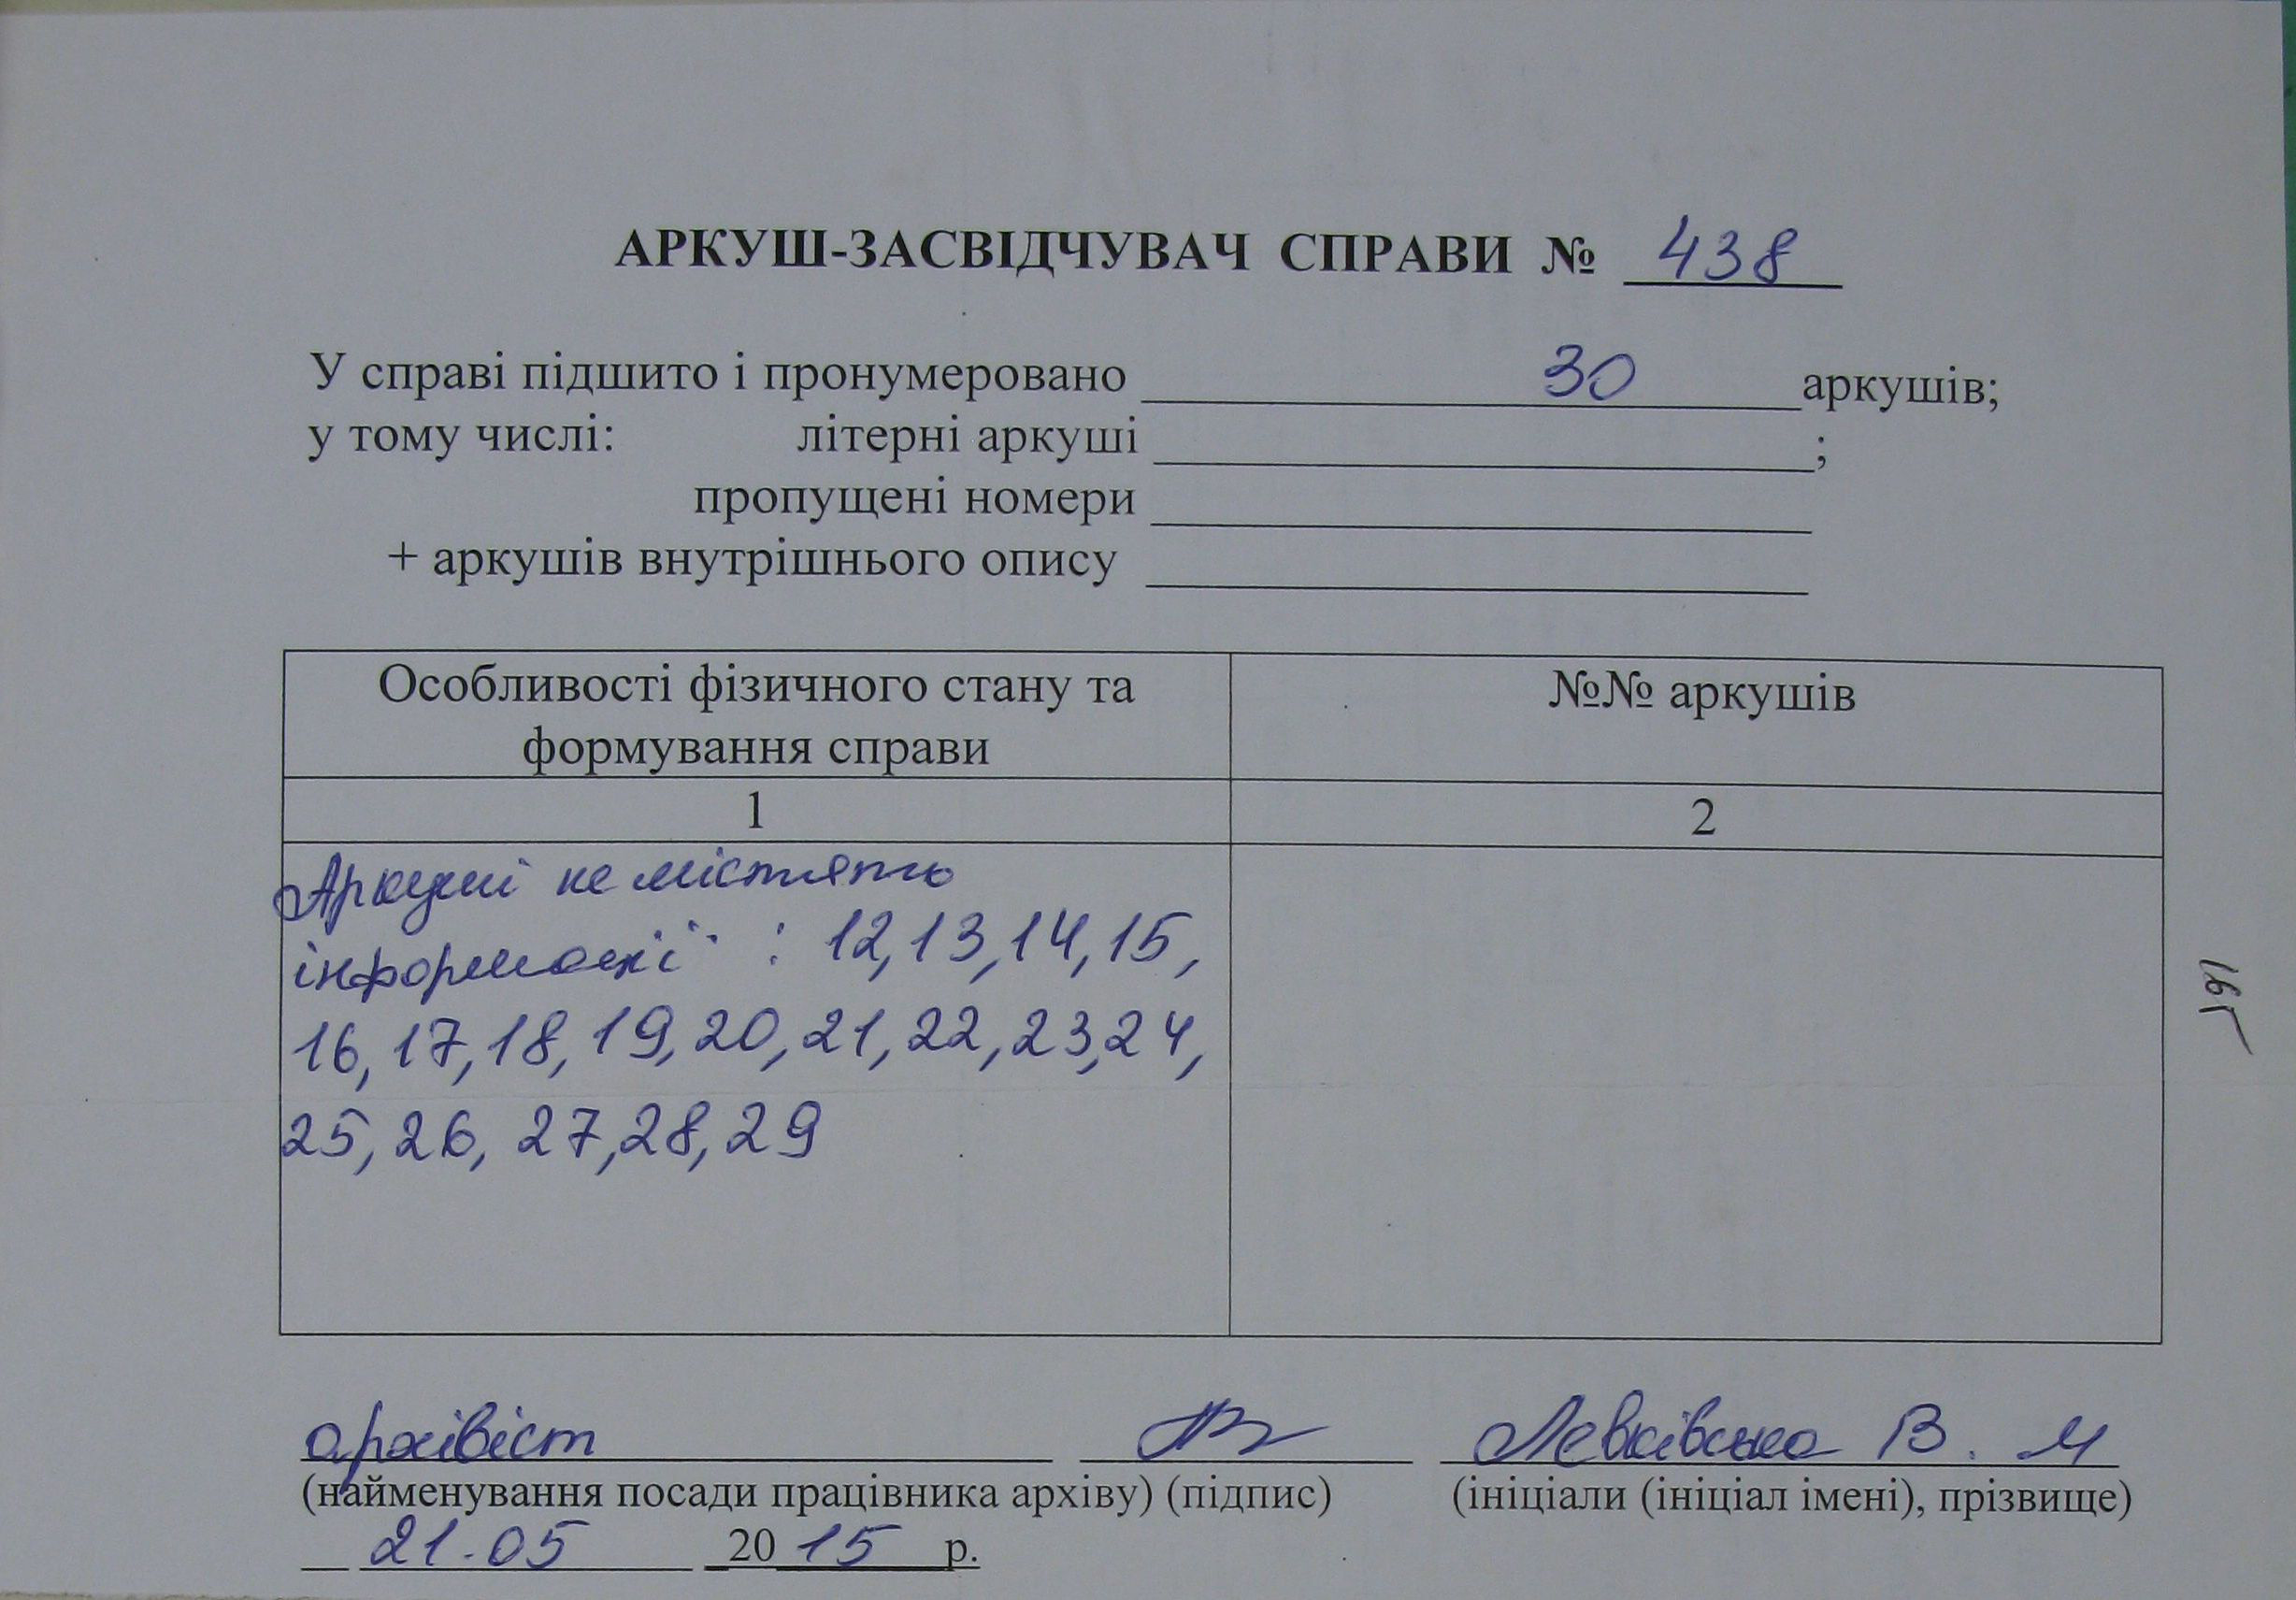 АРКУШ-ЗАСВІДЧУВАЧ СПРАВИ № 438
У справі підшито і пронумеровано 30 аркушів;
у тому числі: літерні аркуші ;
пропущені номери
+ аркушів внутрішнього опису
Особливості фізичного стану та
формування справи
№№ аркушів
1
2
Аркуші не містять
інформації : 12, 13, 14, 15,
16, 17, 18, 19, 20, 21, 22, 23, 24,
25, 26, 27, 28, 29
архівіст Левківська В. М
(найменування посади працівника архіву) (підпис) (ініціали (ініціал імені), прізвище)
21.05 2015 р.